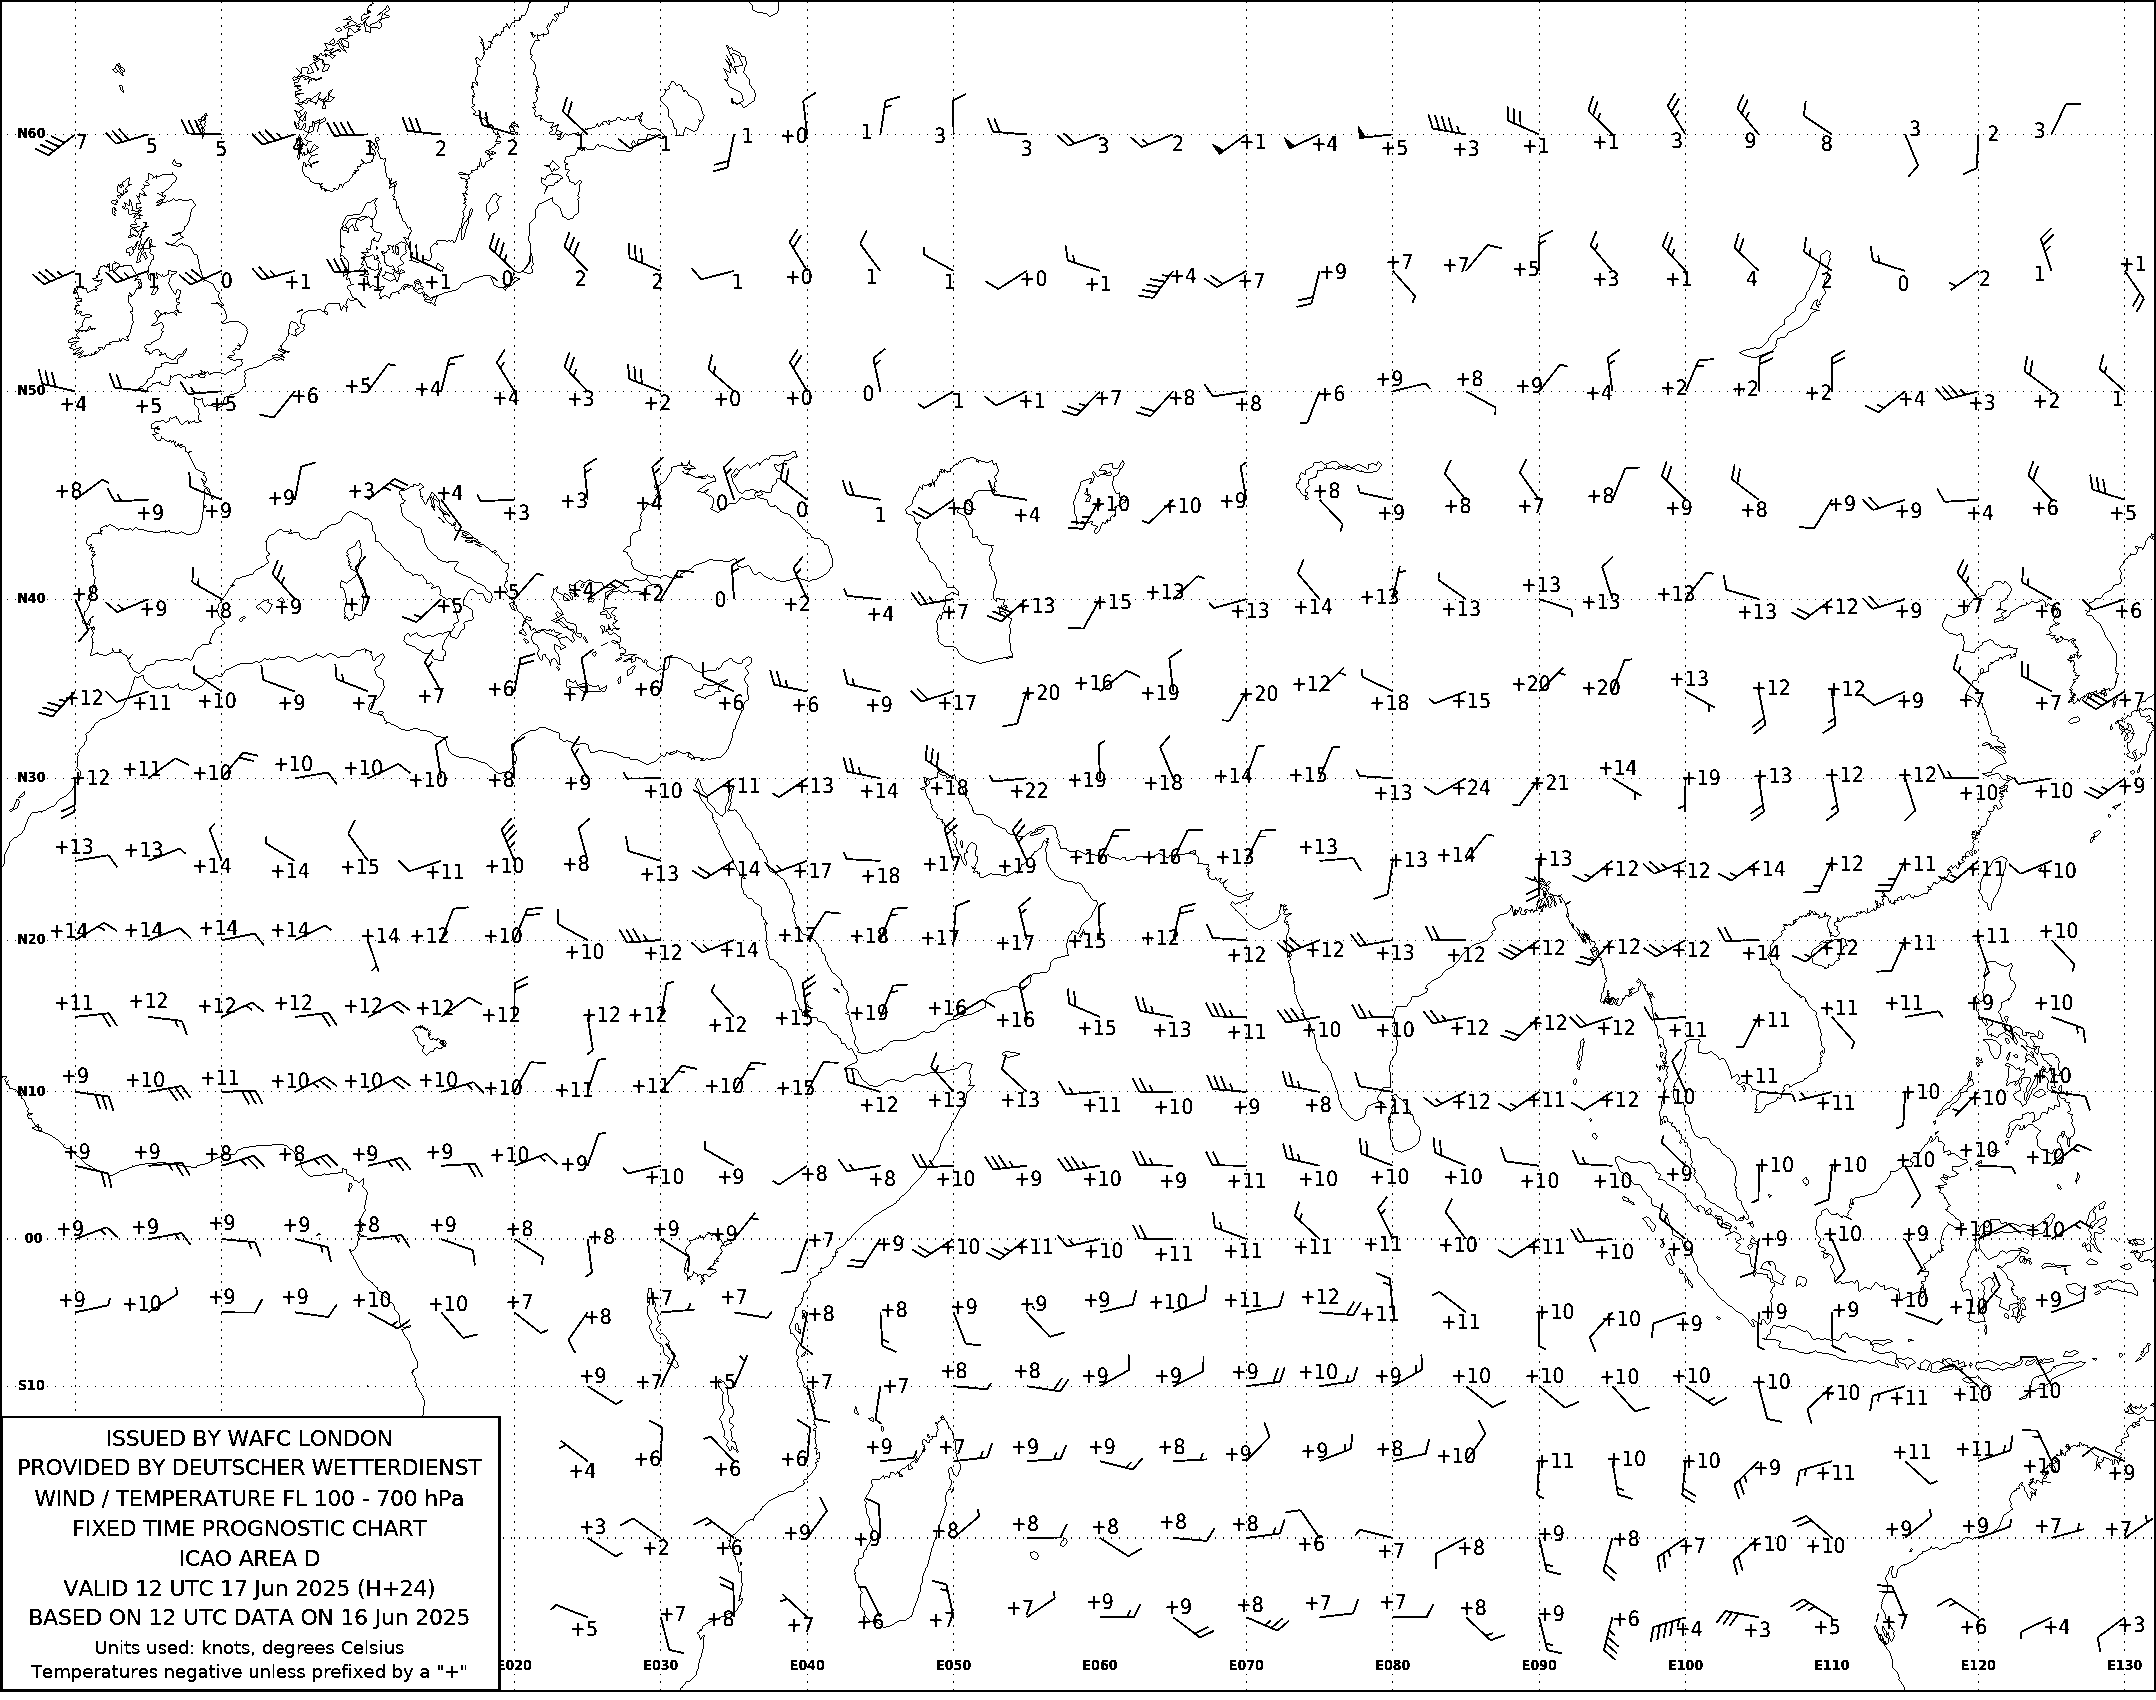 N60 7 5 5 4 1 2 2 1 1 1 +0 1 3 3 3 2 +1 +4 +5 +3 +1 +1 3 9 8 3 2 3
1 1 0 +1 +1 +1 0 2 2 1 +0 1 1 +0 +1 +4 +7 +9 +7 +7 +5 +3 +1 4 2 0 2 1 +1
N50 +4 +5 +5 +6 +5 +4 +4 +3 +2 +0 +0 0 1 +1 +7 +8 +8 +6 +9 +8 +9 +4 +2 +2 +2 +4 +3 +2 1
+8 +9 +9 +9 +3 +4 7 +3 +3 +4 0 0 1 +0 +4 +10 +10 +9 +8 +9 +8 +7 +8 +9 +8 +9 +9 +4 +6 +5
N40 +8 +9 +8 +9 +7 +5 +5 +4 +2 0 +2 +4 +7 +13 +15 +13 +13 +14 +13 +13 +13 +13 +13 +13 +12 +9 +7 +6 +6
+12 +11 +10 +9 +7 +7 +6 +7 +6 +6 +6 +9 +17 +20 +16 +19 +20 +12 +18 +15 +20 +20 +13 +12 +12 +9 +7 +7 +7
N30 +12 +11 +10 +10 +10 +10 +8 +9 +10 +11 +13 +14 +18 +22 +19 +18 +14 +15 +13 +24 +21 +14 +19 +13 +12 +12 +10 +10 +9
+13 +13 +14 +14 +15 +11 +10 +8 +13 +14 +17 +18 +17 +19 +16 +16 +13 +13 +13 +14 +13 +12 +12 +14 +12 +11 +11 +10
N20 +14 +14 +14 +14 +14 +12 +10 +10 +12 +14 +17 +18 +17 +17 +15 +12 +12 +12 +13 +12 +12 +12 +12 +14 +12 +11 +11 +10
+11 +12 +12 +12 +12 +12 +12 +12 +12 +12 +15 +19 +16 +16 +15 +13 +11 +10 +10 +12 +12 +12 +11 +11 +11 +11 +9 +10
N10 +9 +10 +11 +10 +10 +10 +10 +11 +11 +10 +15 +12 +13 +13 +11 +10 +9 +8 +11 +12 +11 +12 +10 +11 +11 +10 +10 +10
+9 +9 +8 +8 +9 +9 +10 +9 +10 +9 +8 +8 +10 +9 +10 +9 +11 +10 +10 +10 +10 +10 +9 +10 +10 +10 +10 +10
00 +9 +9 +9 +9 +8 +9 +8 +8 +9 +9 +7 +9 +10 +11 +10 +11 +11 +11 +11 +10 +11 +10 +9 +9 +10 +9 +10 +10
+9 +10 +9 +9 +10 +10 +7 +8 +7 +7 +8 +8 +9 +9 +9 +10 +11 +12 +11 +11 +10 +10 +9 +9 +9 +10 +10 +9
S10 +9 +7 +5 +7 +7 +8 +8 +9 +9 +9 +10 +9 +10 +10 +10 +10 +10 +10 +11 +10 +10
+4 +6 +6 +6 +9 +7 +9 +9 +8 +9 +9 +8 +10 +11 +10 +10 +9 +11 +11 +11 +10 +9
+3 +2 +6 +9 +9 +8 +8 +8 +8 +8 +6 +7 +8 +9 +8 +7 +10 +10 +9 +9 +7 +7
+5 +7 +8 +7 +6 +7 +7 +8 +9 +8 +7 +7 +8 +9 +6 +4 +3 +5 +7 +6 +4 +3
E020 E030 E040 E050 E060 E070 E080 E090 E100 E110 E120 E130
ISSUED BY WAFC LONDON
PROVIDED BY DEUTSCHER WETTERDIENST
WIND / TEMPERATURE FL 100 - 700 hPa
FIXED TIME PROGNOSTIC CHART
ICAO AREA D
VALID 12 UTC 17 Jun 2025 (H+24)
BASED ON 12 UTC DATA ON 16 Jun 2025
Units used: knots, degrees Celsius
Temperatures negative unless prefixed by a "+"